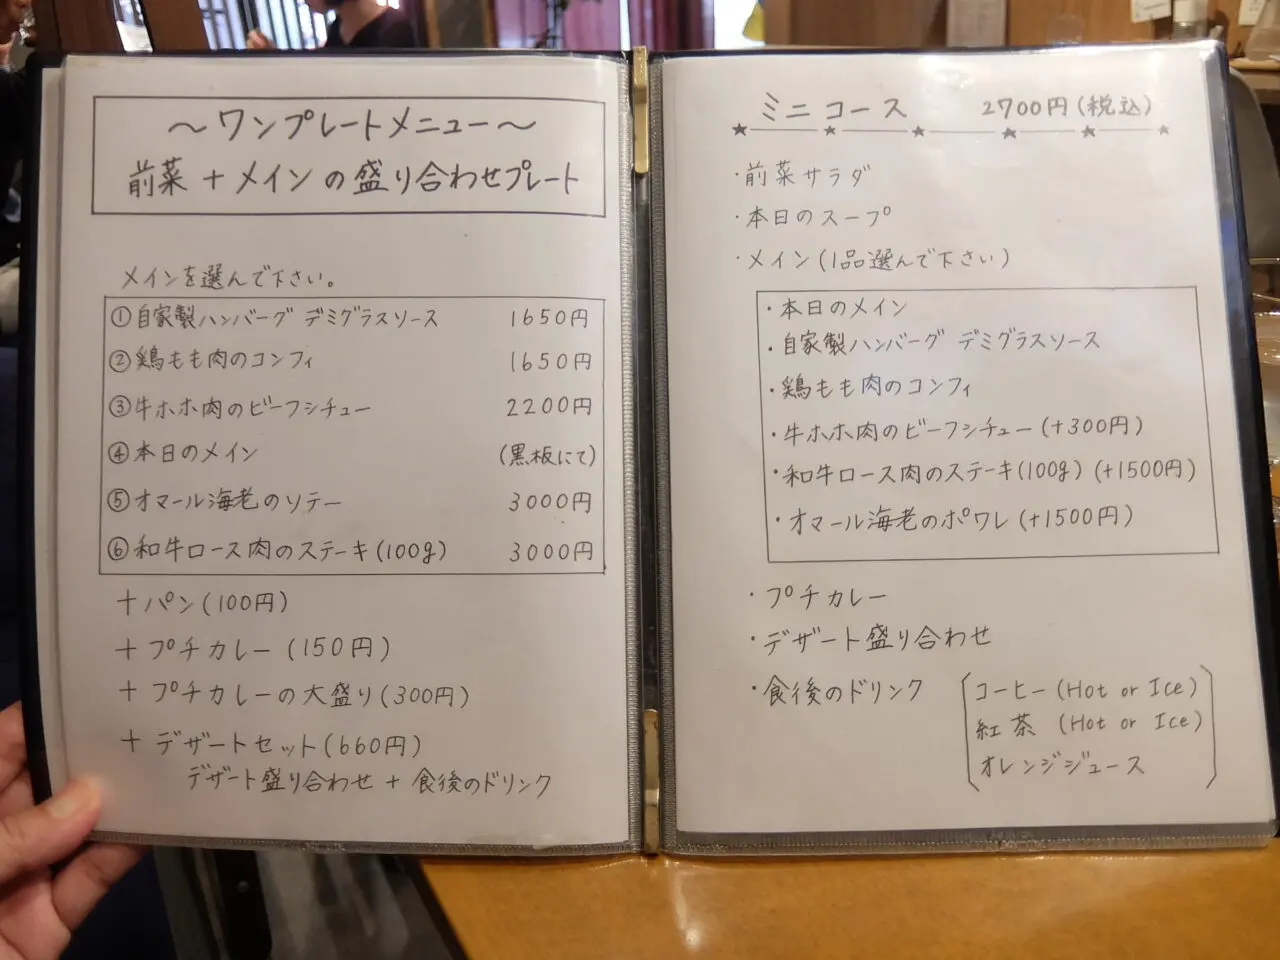 ～ワンプレートメニュー～
前菜＋メインの盛り合わせプレート
メインを選んで下さい。
①自家製ハンバーグ デミグラスソース 1650円
②鶏もも肉のコンフィ 1650円
③牛ホホ肉のビーフシチュー 2200円
④本日のメイン (黒板にて)
⑤オマール海老のソテー 3000円
⑥和牛ロース肉のステーキ(100g) 3000円
＋パン(100円)
＋プチカレー(150円)
＋プチカレーの大盛り(300円)
＋デザートセット(660円)
デザート盛り合わせ＋食後のドリンク
ミニコース 2700円(税込)
・前菜サラダ
・本日のスープ
・メイン(1品選んで下さい)
・本日のメイン
・自家製ハンバーグ デミグラスソース
・鶏もも肉のコンフィ
・牛ホホ肉のビーフシチュー(+300円)
・和牛ロース肉のステーキ(100g)(+1500円)
・オマール海老のポワレ(+1500円)
・プチカレー
・デザート盛り合わせ
・食後のドリンク
コーヒー(Hot or Ice)
紅茶 (Hot or Ice)
オレンジジュース